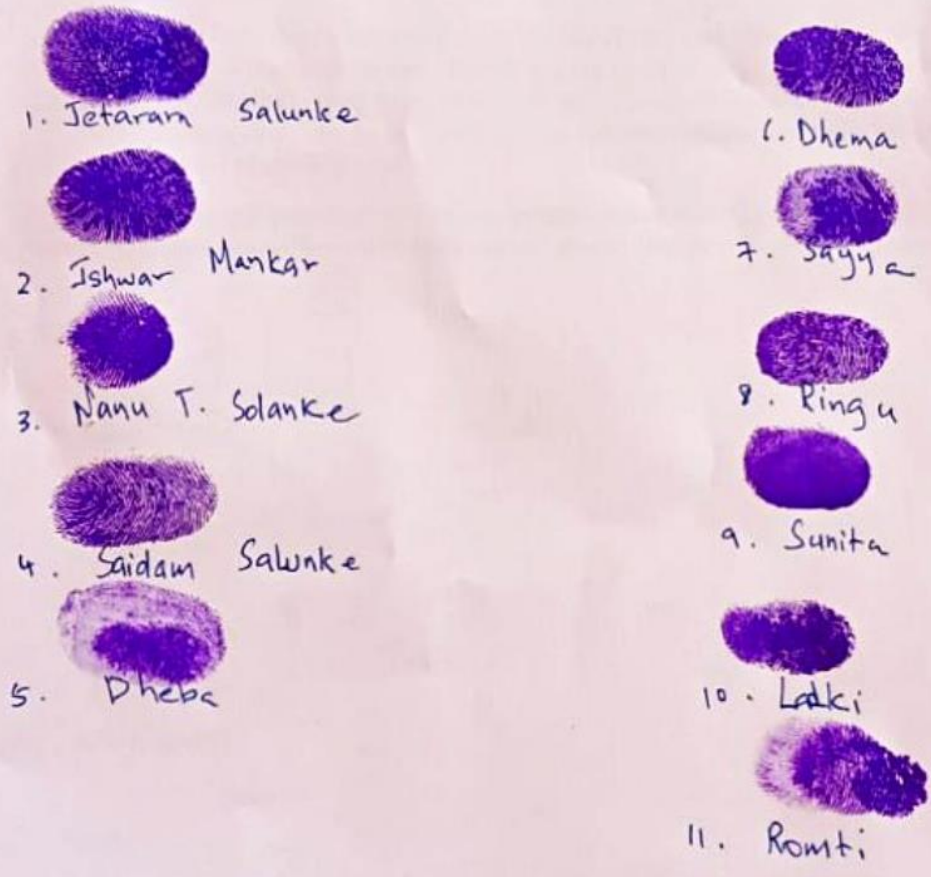 1. Jetaram Salunke
2. Ishwar Mankar
3. Nanu T. Solanke
4. Saidam Salunke
5. Dheba
6. Dhema
7. Sayya
8. Ringu
9. Sunita
10. Ladki
11. Romti